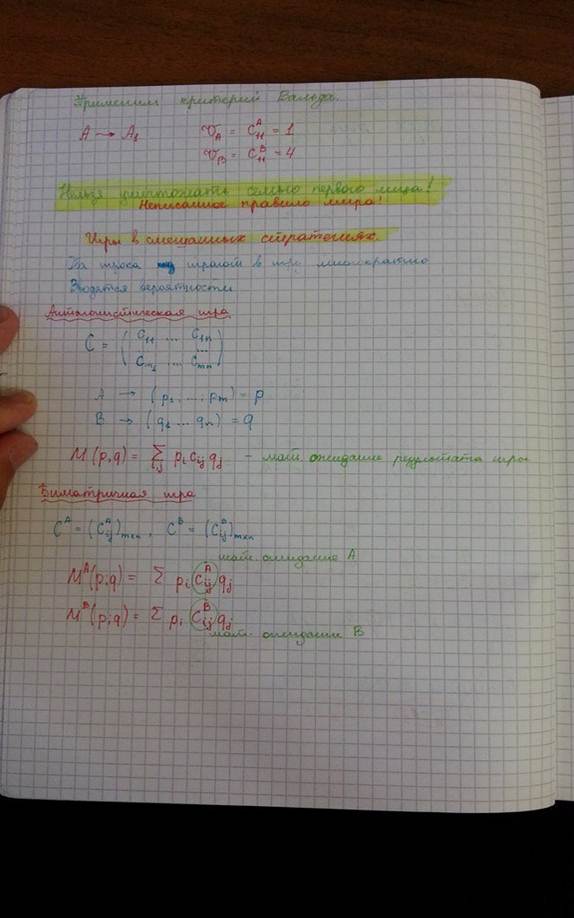 Применим критерий Вальда.
A → A₁ V_A = C₁₁^A = 1
V_B = C₁₁^B = 4
Нельзя уничтожать семью первого мира!
Неписанное правило мира!
Игры в смешанных стратегиях.
игрока играют в игру многократно
Вводятся вероятности
Антагонистическая игра
C = ( C₁₁ ... C₁ₙ
...
Cₘ₁ ... Cₘₙ )
A → (p₁ ... pₘ) = p
B → (q₁ ... qₙ) = q
M(p,q) = Σ_ij p_i c_ij q_j – мат. ожидание результата игры
Биматричная игра
C^A = (C_ij^A)_m×n , C^B = (C_ij^B)_m×n
мат. ожидание A
M^A(p,q) = Σ p_i C_ij^A q_j
M^B(p,q) = Σ p_i C_ij^B q_j
мат. ожидание B